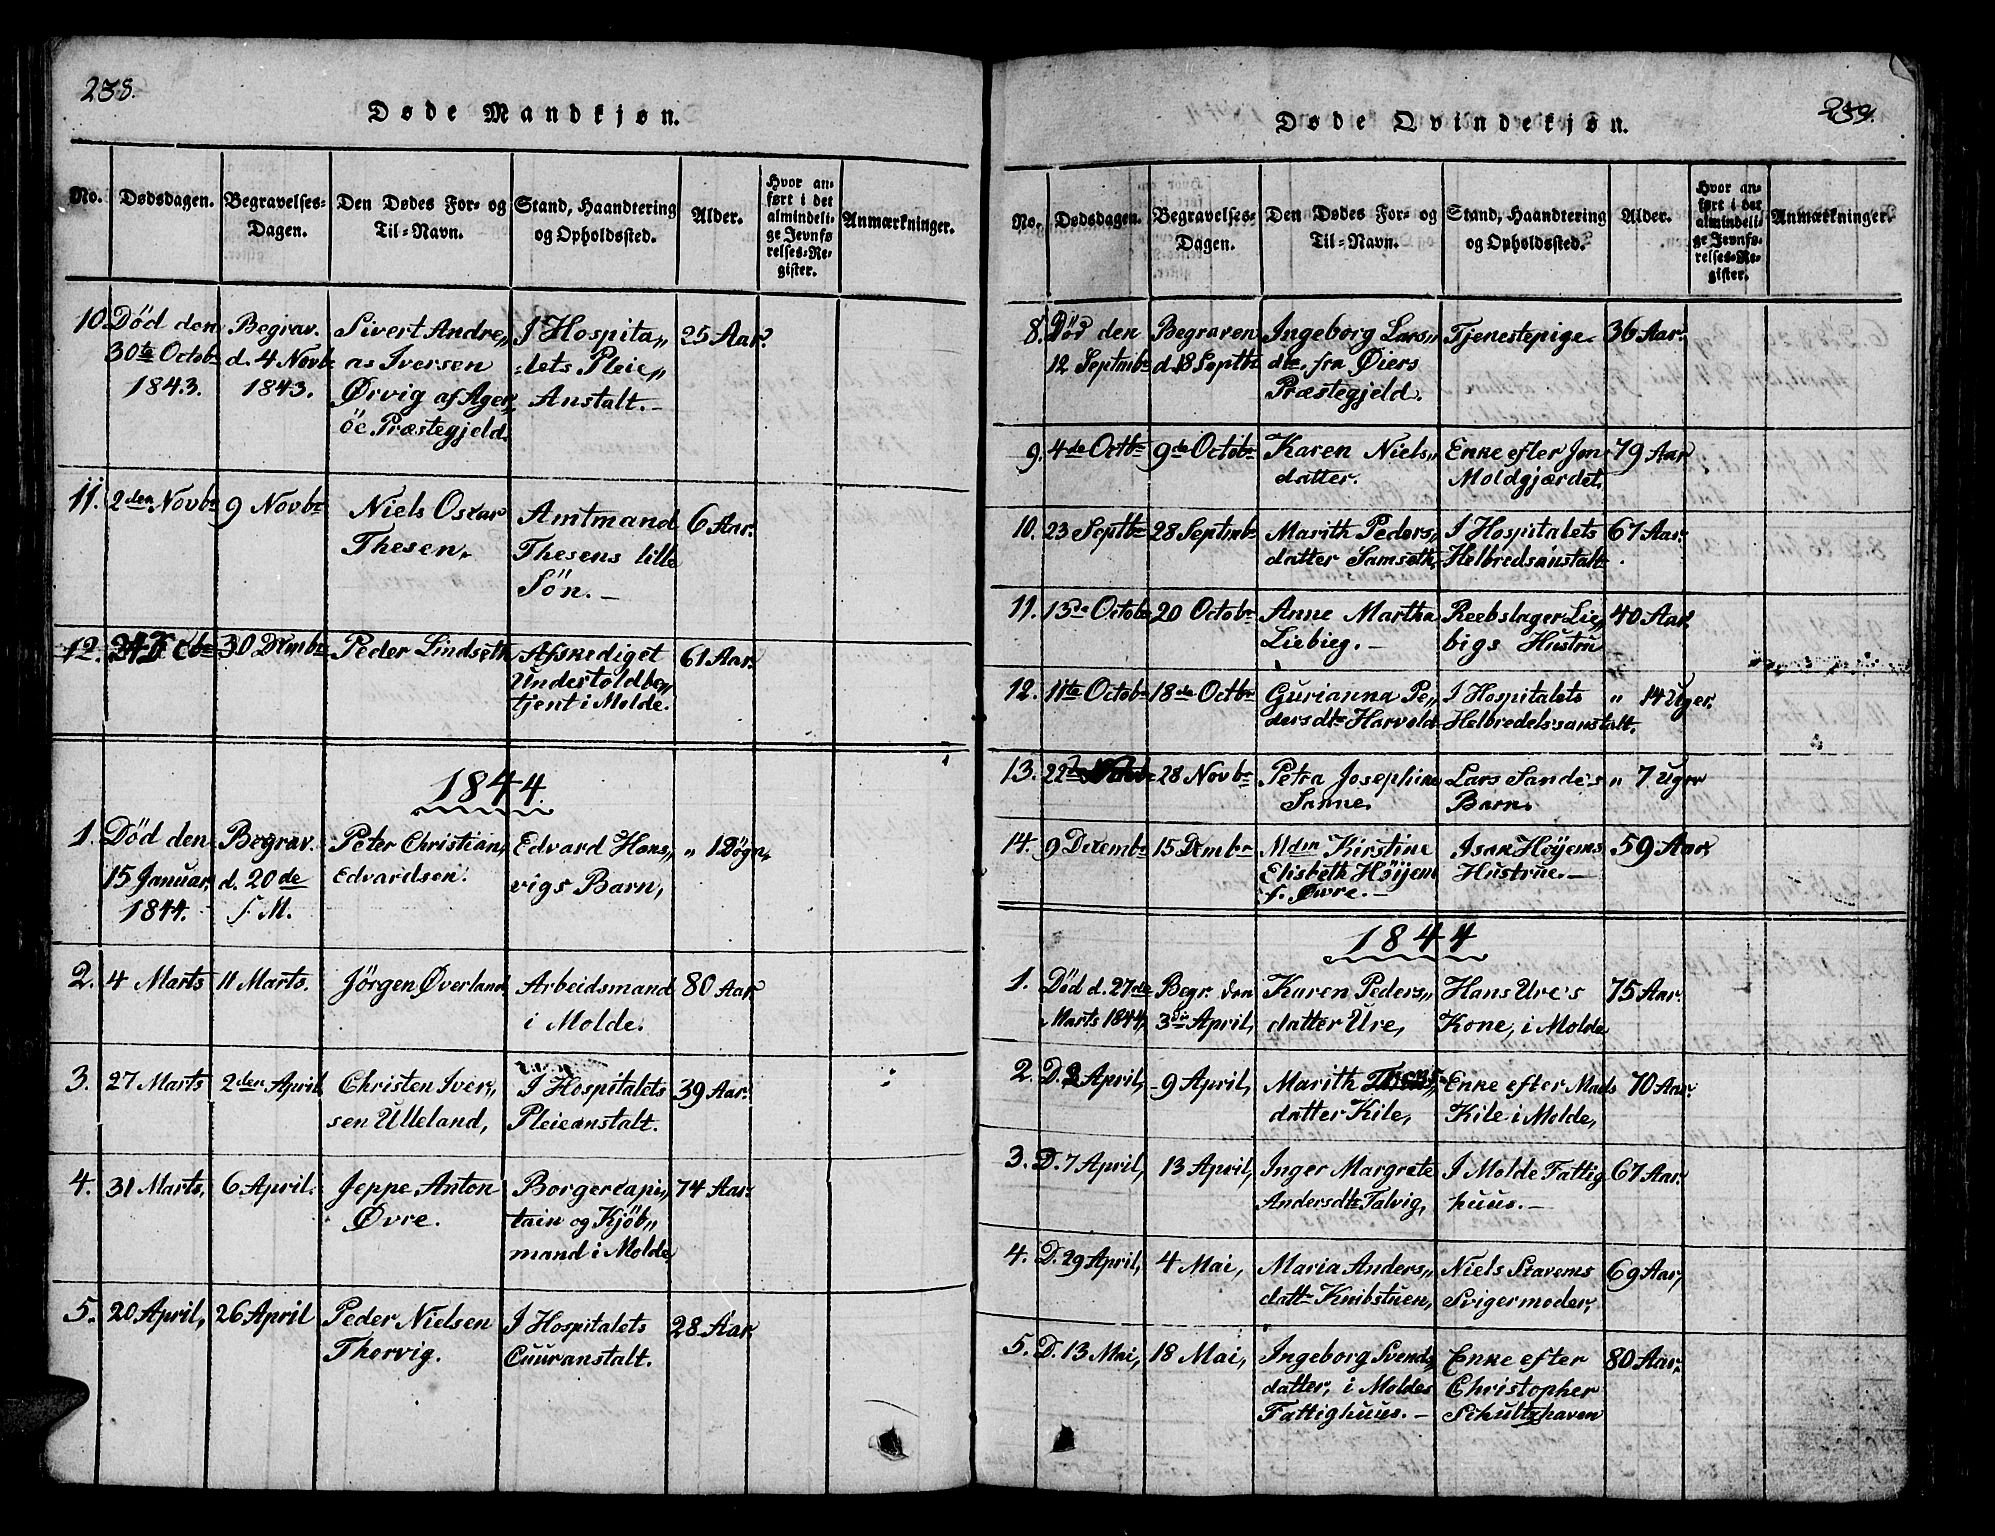 238.
Døde Mandkjøn.
No.
Dødsdagen.
Begravelses-
Dagen.
Den Dødes For- og
Til-Navn.
Stand, Haandtering
og Opholdssted.
Alder.
Hvor an-
ført i det
almindeli-
ge Jevnfø-
relses-Re-
gister.
Anmærkninger.
10. Død den
30te Octobr
1843.
Begrav.
d. 4 Novb.
1843.
Sivert Andre„
as Iversen
Ørvig af Ager„
öe Præstegjeld.
I Hospita„
lets Pleie„
Anstalt.–
25 Aar.
11. 2den Novbr
9 Novbr
Niels Oscar
Thesen,
Amtmand
Thesens lille
Sön.–
6 Aar.
12.
30 Dcmbr
Peder Lindseth
Afskediget
Undertoldbe„
tjent i Molde.
61 Aar.
1844.
1. Död den
15 Januar,
1844.
Begrav.
d. 20de
s. M.
Peter Christian,
Edvardsen.
Edvard Hans„
vigs Barn,
„ 1 Døgn,
2. 4 Marts
11 Marts.
Jörgen Øverland
Arbeidsmand
i Molde.
80 Aar.
3. 27 Marts
2den April
Christen Iver„
sen Ulleland,
I Hospitalets
Pleieanstalt.
39 Aar.
4. 31 Marts,
6 April.
Jeppe Anton
Øvre.
Borgercapi„
tain og Kjöb„
mand i Molde
74 Aar.
5. 20 April,
26 April
Peder Nielsen
Thorvig.
I Hospitalets
Cuuranstalt.
28 Aar.
239.
Døde Qvindekjøn.
No.
Dødsdagen.
Begravelses-
Dagen.
Den Dødes For- og
Til-Navn.
Stand, Haandtering
og Opholdssted.
Alder.
Hvor an-
ført i det
almindeli-
ge Jevnfø-
relses-Re-
gister.
Anmærkninger.
8. Død den
12 Septmbr
Begraven
d. 18 Septbr
Ingeborg Lars„
dtr. fra Øiers
Præstegjeld.
Tjenestepige
36 Aar.
9. 4de Octbr
9de Octobr
Karen Niels„
datter.
Enke efter Jon
Moldgjærdet.
79 Aar
10. 23 Septbr
28 Septmbr
Marith Peders„
datter Samseth,
I Hospitalets
Helbredsanstalt
67 Aar.
11. 13de Octobr
20 Octobr
Anne Martha
Liebieg.–
Reebslager Lie„
bigs Hustru
40 Aar.
12. 11te Octobr
18de Octbr
Gurianna Pe„
dersdtr Harvold
I Hospitalets
Helbredelsesanstalt.
„ 14 Uger.
13. 22de Novbr
28 Novbr
Petra Josephine
Sanne.
Lars Sande's
Barn.
„ 7 Uger
14. 9 Decembr
15 Dcmbr
Mdm Kirstine
Elisbeth Höijem
f. Øvre.–
Isak Höyems
Hustrue.–
59 Aar.
1844
1. Död d. 27de
Marts 1844,
Begr. den
3die April,
Karen Peders„
datter Ure,
Hans Ure's
Kone, i Molde
75 Aar.
2. D. 2 April,
9 April,
Marith
datter Kile,
Enke efter Mads
Kile i Molde,
70 Aar.
3. D. 7 April,
13 April,
Inger Margrete
Andersdtr Talvig,
I Molde Fattig
huus.–
67 Aar.
4. D. 29 April,
4 Mai,
Maria Anders„
dattr Knibstuen,
Niels Stavems
Svigermoder,
69 Aar,
5. D. 13 Mai,
18 Mai,
Ingeborg Svends„
datter, i Moldes
Fattighuus.–
Enke efter
Christopher
Schultzhaven
80 Aar,